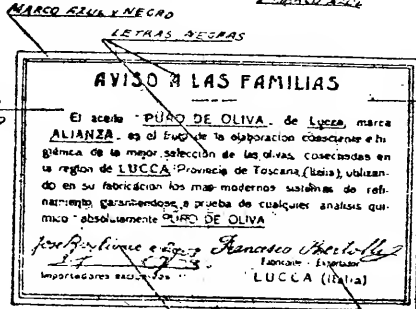 MARCO AZUL Y NEGRO
LETRAS NEGRAS
AVISO A LAS FAMILIAS
El aceite "PURO DE OLIVA" de Lucca, marca
ALIANZA, es el fruto de la elaboración consciente e hi
giénica de la mejor selección de las olivas cosechadas en
la region de LUCCA Provincia de Toscana, (Italia), utilizan-
do en su fabricación los mas modernos sistemas de refi-
namiento, garantiendose a prueba de cualquier analisis qui-
mico "absolutamente PURO DE OLIVA
Francesco Bertolli
Importadores exclusivos
Fabricante - Exportador
LUCCA (Italia)